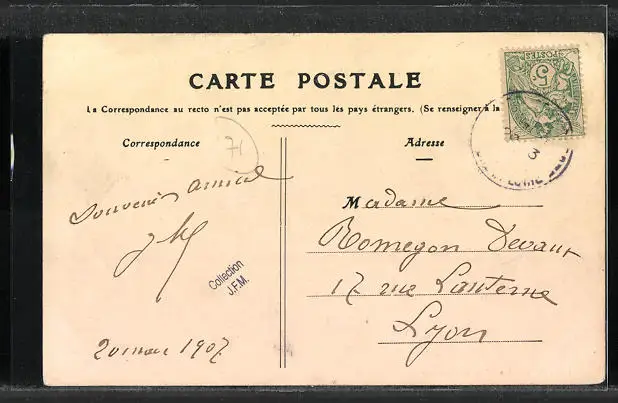 CARTE POSTALE
La Correspondance au recto n'est pas acceptée par tous les pays étrangers. (Se renseigner à la
Correspondance
Adresse
71
Souvenir amical
20 mars 1907
Collection
J.F.M.
Madame
Romegon Devaux
17 rue Lanterne
Lyon
POSTES
5
3